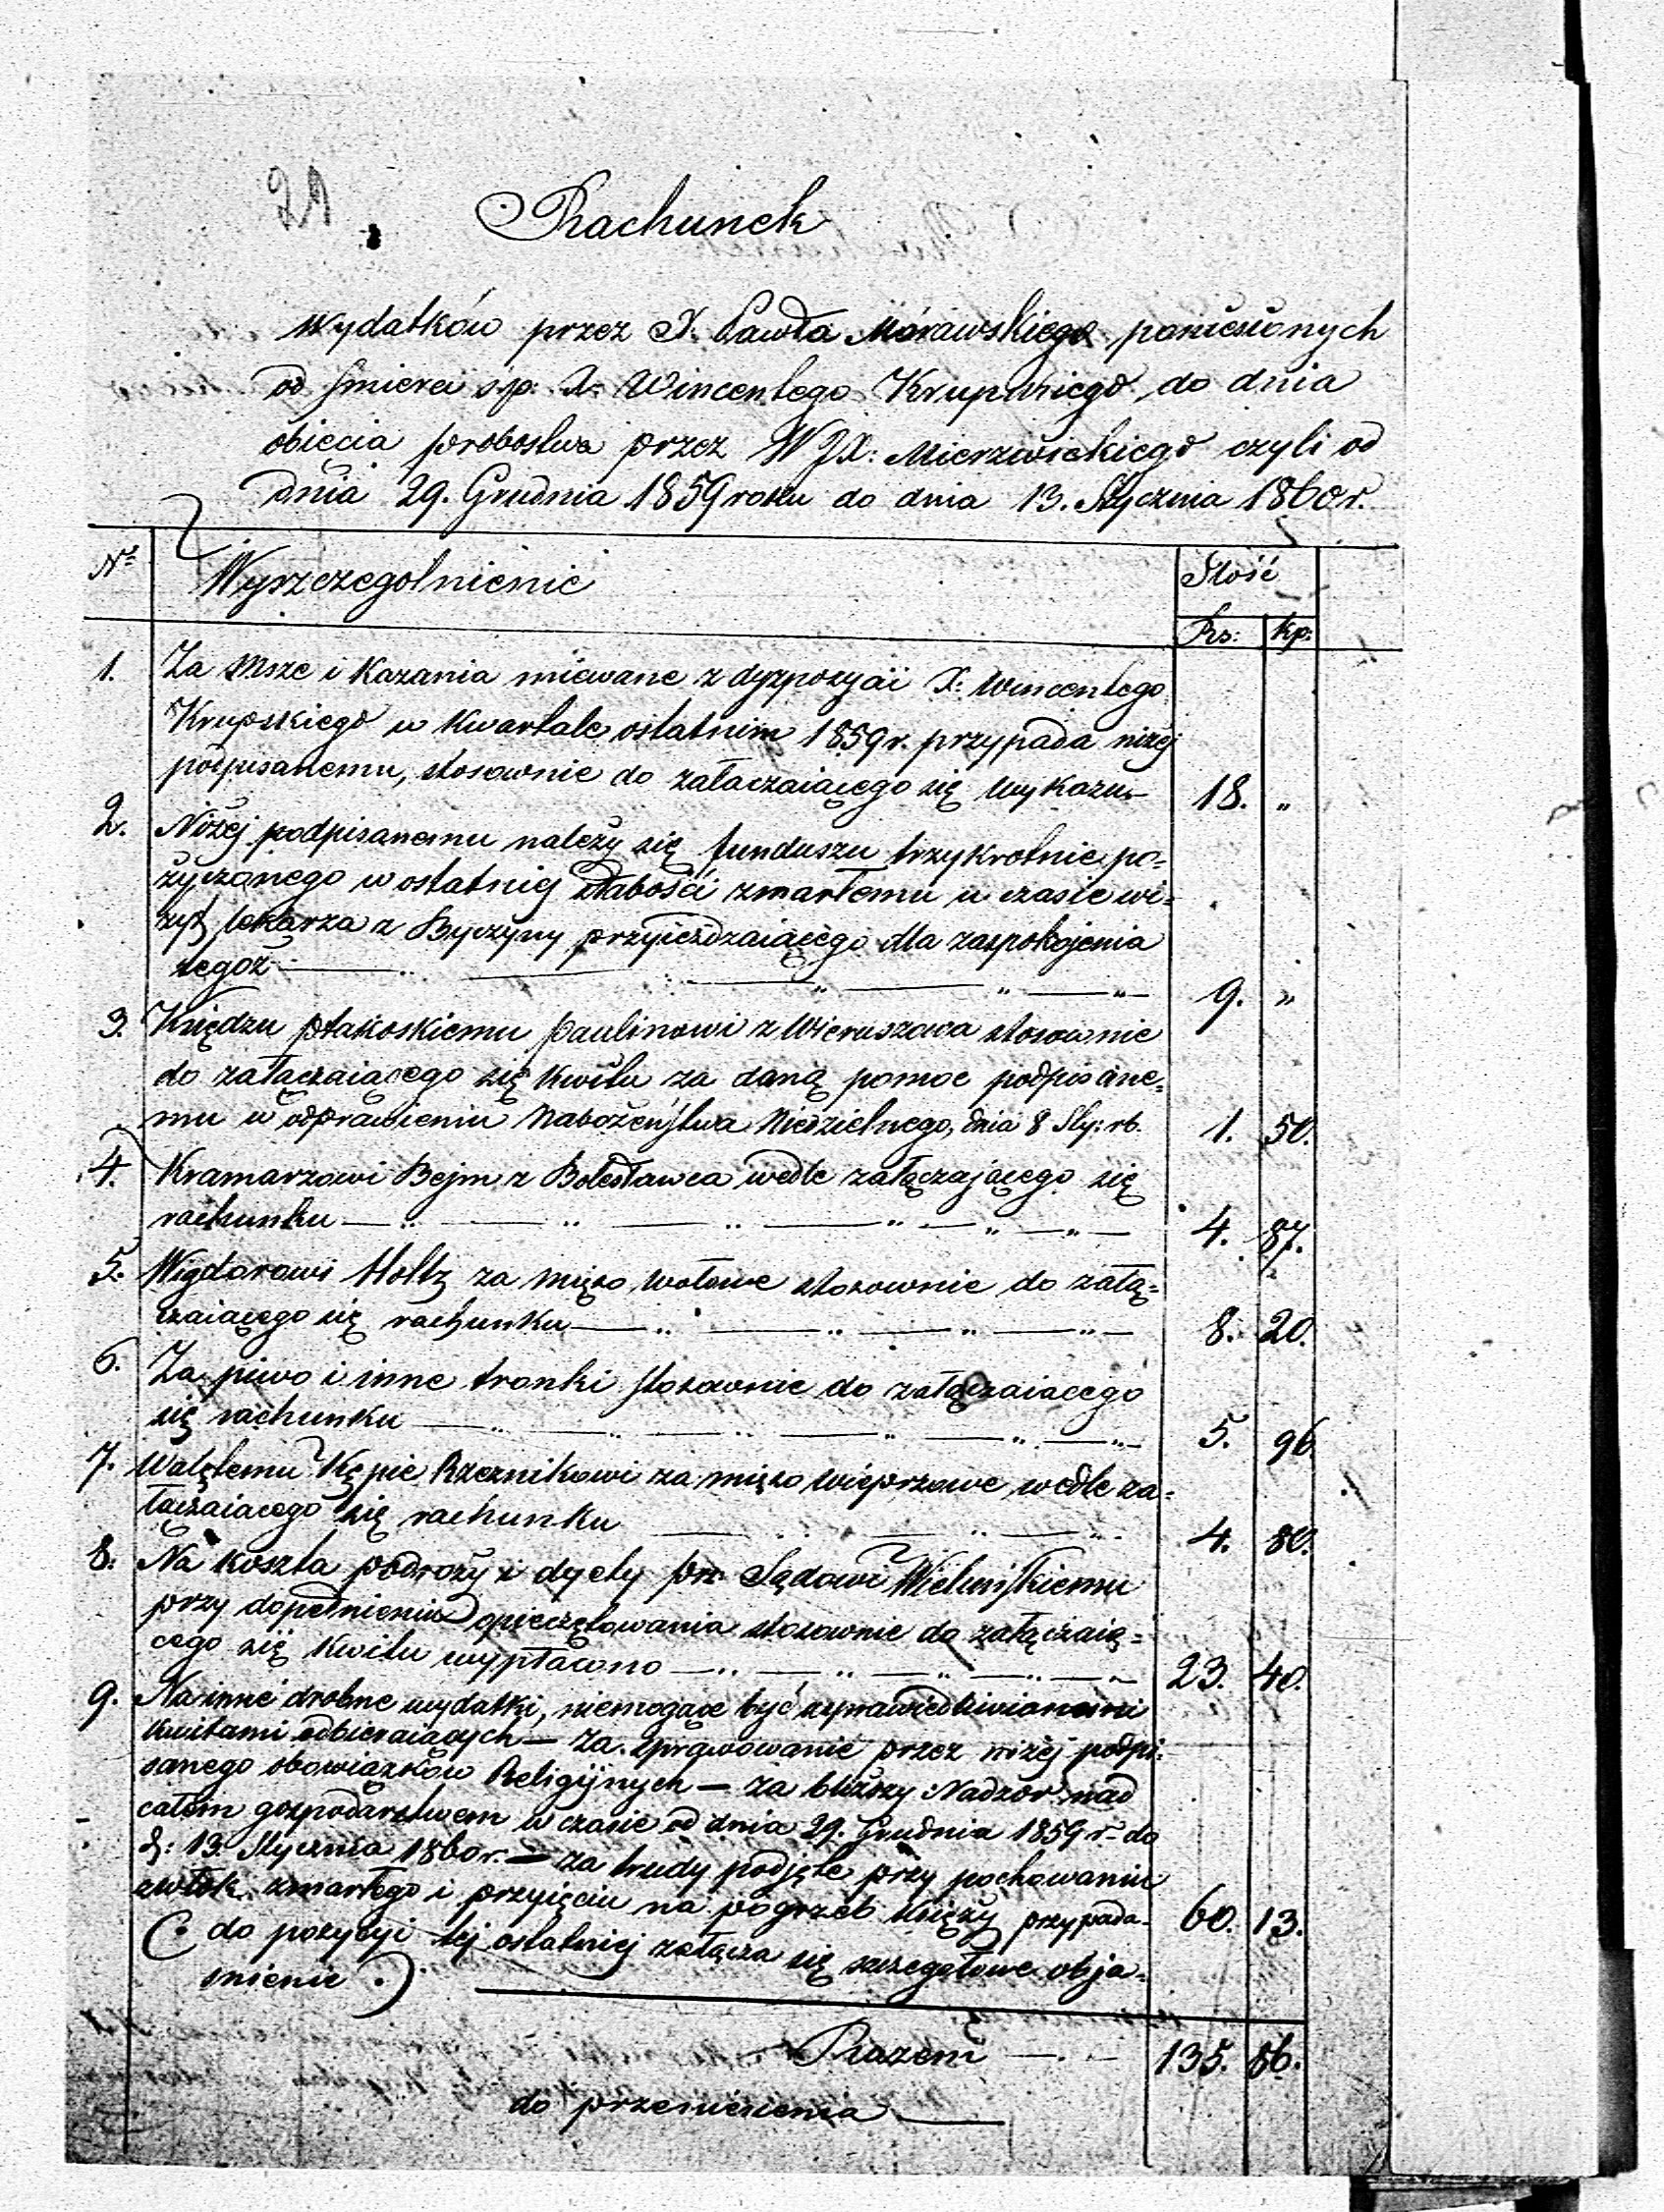 29
Rachunek
Wydatków przez X. Pawła Morawskiego poniesionych
od śmierci s.p. X. Wincentego Krupskiego do dnia
obięcia probostwa przez WJX: Mierzwickiego czyli od
dnia 29. Grudnia 1859 roku do dnia 13. Stycznia 1860 r.
No Wyszczegolnienie Ilość
Rs: kp:
1. Za Msze i Kazania miewane z dyzpozycii X: Wincentego
Krupskiego w kwartale ostatnim 1859 r. przypada niżej
podpisanemu, stosownie do załączaiącego się wykazu 18. "
2. Niżej podpisanemu należy się funduszu trzykrotnie po=
życzonego w ostatniej słabości zmarłemu w czasie wi=
zyt lekarza z Byczyny przyieżdzaiącego dla zaspokojenia
tegoż 9. "
3. Księdzu Ptakoskiemu Paulinowi z Wieruszowa stosownie
do załączaiącego się kwitu za daną pomoc podpisane=
mu w odprawieniu Nabożeństwa Niedzielnego, dnia 8 Sty: rb. 1. 50.
4. Kramarzowi Bejm z Bolesławca wedle załączającego się
rachunku 4. 87.
5. Wigdorowi Holtz za mięso wołowe stosownie do załą=
czaiącego się rachunku 8. 20.
6. Za piwo i inne tronki stosownie do załączaiacego
się rachunku 5. 96
7. Walętemu Kępie Rzeznikowi za mięso wieprzowe wedle za=
łączaiacego się rachunku 4. 80.
8. Na koszta podroży i dyety pr. Sądowi Wieluńskiemu
przy dopełnieniu opieczętowania stosownie do załączaią=
cego się kwitu wypłacono 23. 40.
9. Na inne drobne wydatki, niemogące być usprawiedliwionemi
kwitami odbieraiących — za sprawowanie przez niżej podpi=
sanego obowiązków Religijnych — za bliższy Nadzor nad
całem gospodarstwem w czasie od dnia 29. Grudnia 1859 r. do
d: 13. Stycznia 1860 r. — za trudy podjęte przy pochowaniu
zwłok zmarłego i przyięciu na pogrzeb Księży przypada 60. 13.
(: do pozycyi tej ostatniej załącza się szczegółowe obja=
snienie :)
Razem 135. 86.
do przeniesienia